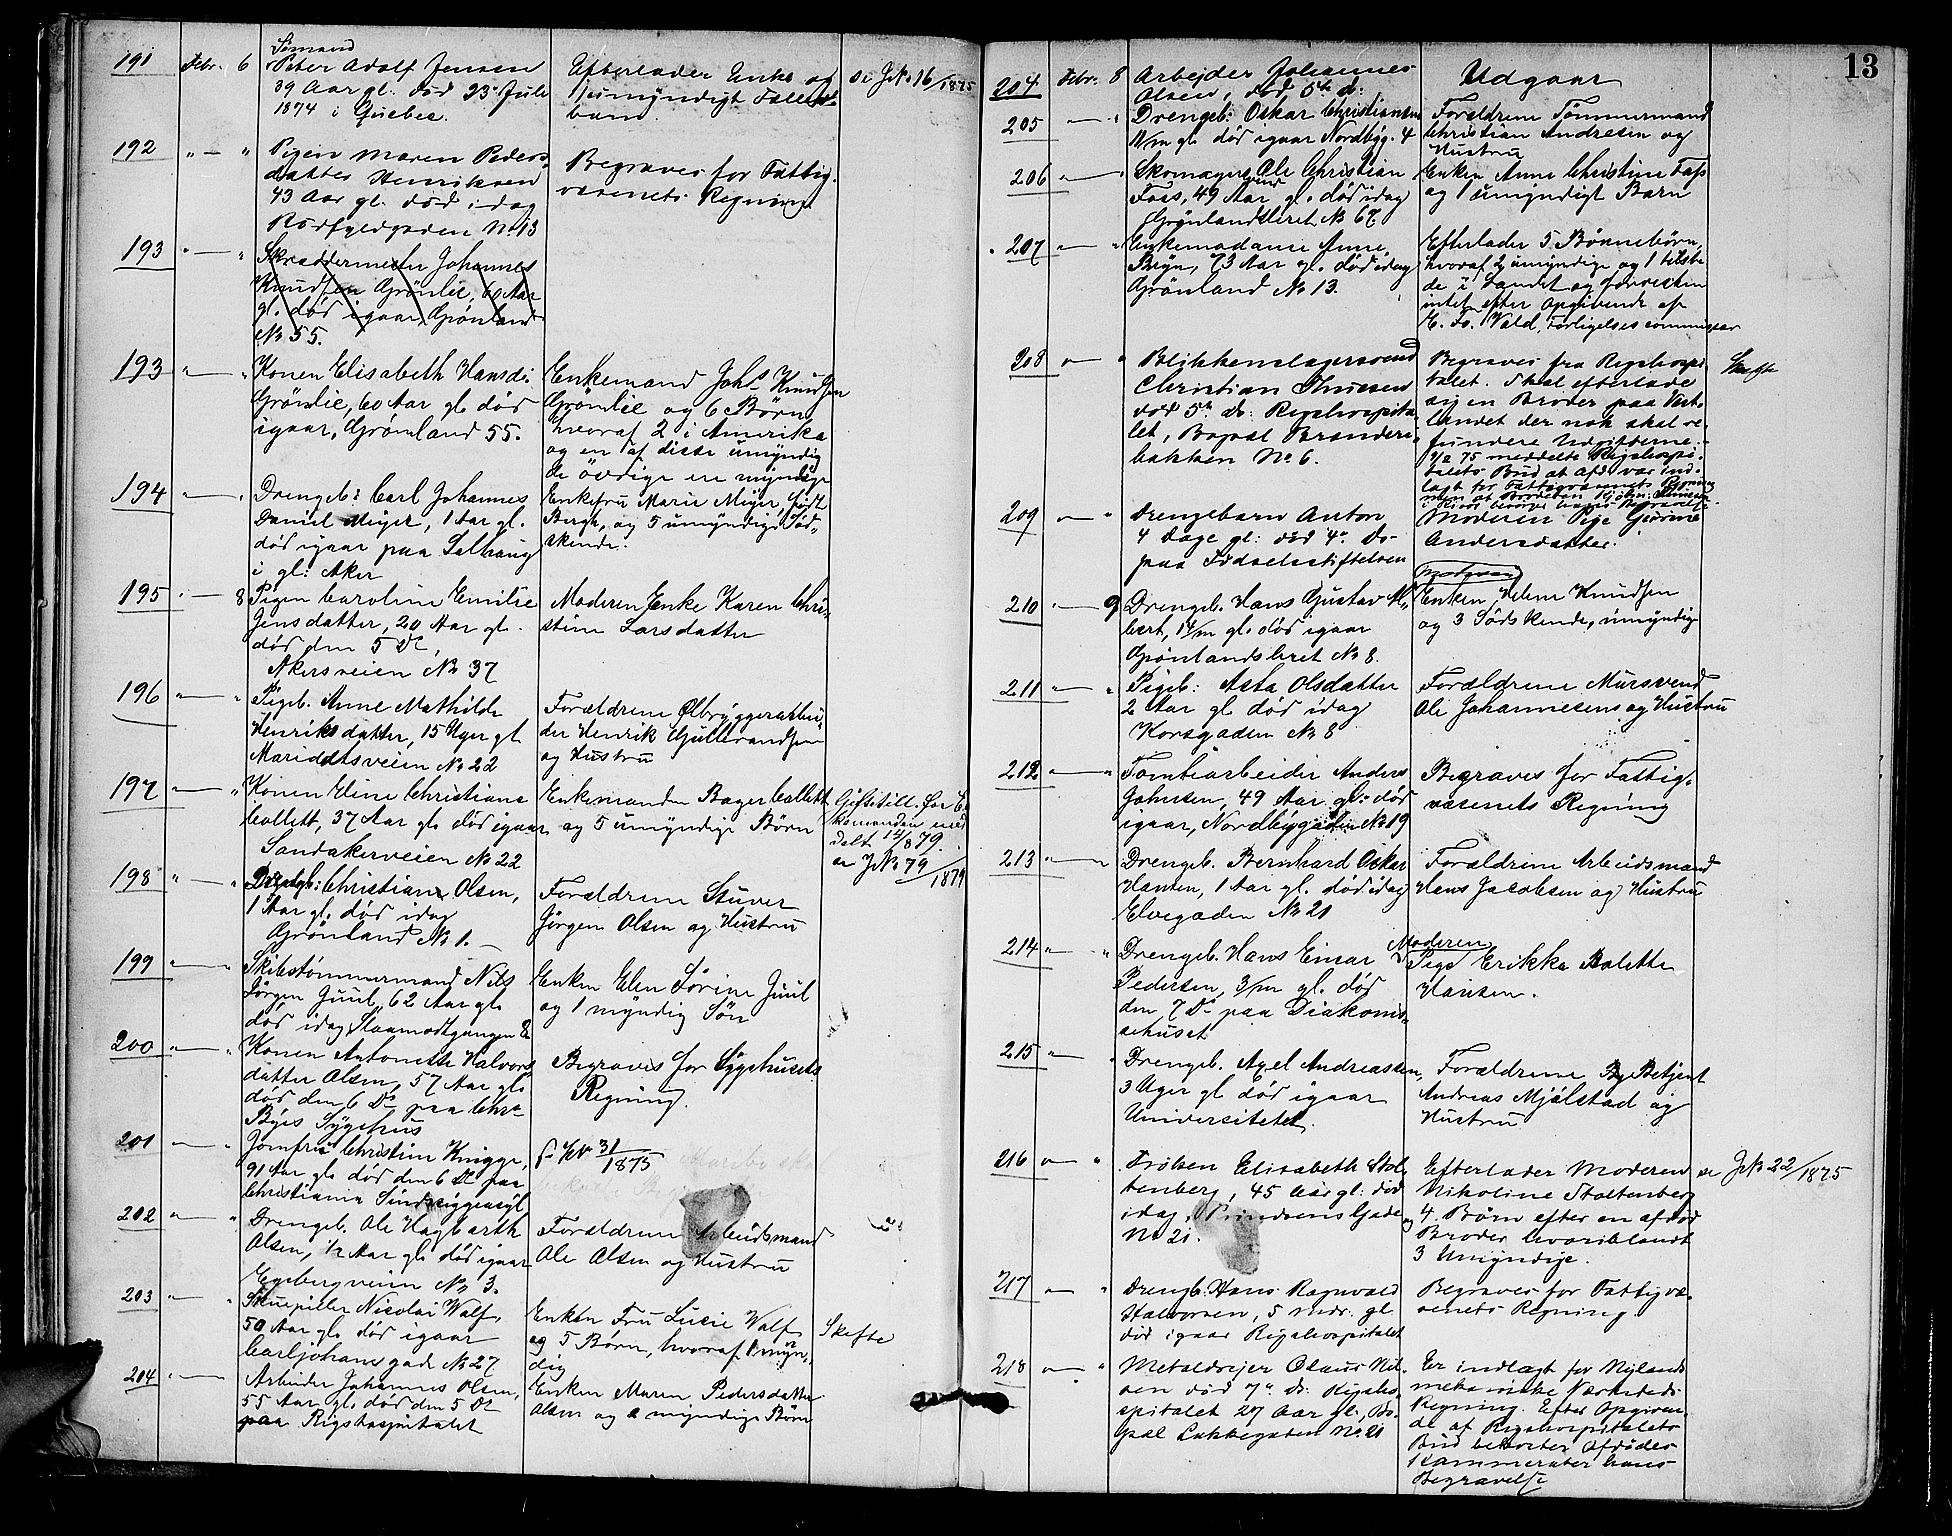 191 Febr. 6 Sømand
Peter Adolf Jensen
39 Aar gl. død 23' Juli
1874 i Quebec.
Efterlader Enke og
1 umyndigt Fælles-
barn.
se JrNo 16/1875
192 " — " Pigen Maren Peders-
datter Henriksen
43 Aar gl. død idag
Rødfyldgaden No 13
Begraves for Fattig-
væsenets Regning
193 " — " Skræddermester Johannes
Knudsen Grönlie, 60 Aar
gl. død igaar, Grönland
No 55.
193 " — " Konen Elisabeth Hansd:
Grönlie, 60 Aar gl. død
igaar, Grönland 55.
Enkemand Johs Knudsen
Grönlie og 6 Børn,
hvoraf 2 i Amerika
og en af disse umyndig
de övrige ere myndige
194 " — " Drengeb: Carl Johannes
Daniel Meyer, 1 Aar gl.
død igaar paa
i gl: Aker
Enkefru Marie Meyer, født
Bergh, og 5 umyndige Sød-
skende.
195 " — 8 Pigen Caroline Emilie
Jensdatter, 20 Aar gl.
død den 5 Ds,
Akersveien No 37
Moderen Enke Karen Chri-
stine Larsdatter
196 " — " Pigeb. Anne Mathilde
Henriksdatter, 15 Uger gl
Maridalsveien No 22
Forældrene Ølbryggerarbei-
der Henrik Gulbrandsen
og Hustru
197 " — " Konen Eline Christiane
Collett, 37 Aar gl. død igaar
Sandakerveien No 22
Enkemanden Bager Collett
og 5 umyndige Börn
Giftetill. for E-
kemanden med
delt 12/8 79.
se JNo 79/1879
198 " — " Drengb: Christian Olsen,
1 Aar gl. død idag
Grönland No 1. —
Forældrene Stuver
Jörgen Olsen og Hustru
199 " — " Skibstømmermand Nils
Jörgen Juul, 62 Aar gl.
død idag, Slaamodtgangen 8
Enken Elen Sörine Juul
og 1 myndig Sön
200 " — " Konen Antonette Halvors
datter Olsen, 57 Aar gl.
død den 6 Ds paa Chra
Byes Sygehus
Begraves for Sygehusets
Regning.
201 " — " Jomfru Christine Knigge,
91 Aar gl. død den 6 Ds paa
Christiania Sindssygeasyl
31/1875
202 " — " Drengeb. Ole Hagbarth
Olsen, 1/2 Aar gl. død igaar
Egebergveien No 3.
Forældrene Arbeidsmand
Ole Olsen og Hustru
203 " — " Skuespiller Nicolai Wolf,
50 Aar gl. død igaar
Carljohans gade No 27
Enken Fru Lucie Wolf
og 5 Børn, hvoraf 1 myn-
dig
Skifte
204 " — Arbeider Johannes Olsen,
55 Aar gl. død den 5 Ds
paa Rigshospitalet
Enken Maren Pedersdatter
Olsen og 2 myndige Börn
13
204 Febr. 8 Arbejder Johannes
Olsen, død 5te ds.
Udgaar
205 — " Drengeb: Oskar Christiansen
11/m gl. død igaar Nordbyg. 4
Forældrene Tømmermand
Christian Andresen og
Hustru
206 " — " Skomagersvend Ole Christian
Foss, 49 Aar gl. død idag
Grønlandsleret No 67
Enken Anne Christine Foss
og 1 umyndigt Barn
207 " — " Enkemadame Anne
Bryn, 73 Aar gl. død idag
Grönland No 13.
Efterlader 5 Bønnebørn,
hvoraf 2 umyndige og 1 tilste-
de i Landet og forresten
intet efter Opgivende af
E. Fr. Wald, Forligelsescommissær
208 " — " Blikkenslagersvend
Christian Thuesen
død 5te ds: Rigshospita-
let, Bopæl Brænderi-
bakken No 6.
Begraves fra Rigshospi-
talet. Skal efterlade
sig en Broder paa Vest-
landet der nok skal re-
fundere Udgifterne.
9/2 75 meddelte Rigshospi-
talets Bud at Afd. var ind-
lagt for Fattigvæsenets Regning
men at Broderen Thuesen
besørger hans Begravelse.
Skifte
209 " — " Drengebarn Anton
4 Dage gl: død 4de ds.
paa Fødselsstiftelsen
Moderen Pige Gurine
Andersdatter.
210 " — 9 Drengeb. Hans Gustav Al-
bert, 14/m gl. død igaar
Grönlandsleret No 8.
Enken Helene Knudsen
og 3 Södskende, umyndige
211 " — " Pigeb: Asta Olsdatter
2 Aar gl. død idag
Korsgaden No 8
Forældrene Mursvend
Ole Johannesens og Hustru
212 " — " Tomtearbeider Anders
Johnsen, 49 Aar gl: død
igaar, Nordbygaden No 19
Begraves for Fattig-
væsenets Regning
213 " — " Drengeb. Bernhard Oskar
Hansen, 1 Aar gl. død idag
Elvegaden No 21
Forældrene Arbeidsmand
Hans Jacobsen og Hustru
214 " — " Drengeb. Hans Einar
Pedersen, 3/m gl. død
den 7 Ds paa Diakonis-
sehuset
Moderen
Pige Erikka Bolette
Hansen.
215 " — " Drengeb. Axel Andreassen,
3 Uger gl død igaar
Universitetet.
Forældrene By Betjent
Andreas Mjölstad og
Hustru
216 " — " Frøken Elisabeth Stol-
tenberg, 45 Aar gl: død
idag, Prindsens Gade
No 21.
Efterlader Moderen
Nikoline Stoltenberg
og 4 Børn efter en afdød
Broder hvoriblandt
3 Umyndige.
se JrNo 22/1875
217 " — " Drengb: Hans Ragnvald
Halvorsen, 5 mdr. gl
død igaar Rigshospitalet
Begraves for Fattigvæ-
senets Regning.
218 " — " Metaldrejer Olaus Nil-
sen død 7de ds: Rigsho-
spitalet 27 Aar gl:, Bo-
pæl Lakkegaten No 21
Er indlagt for Nylands
mekaniske Værksteds
Regning. Efter Opgiven-
de af Rigshospitalets
Bud bekoster Afdødes
Kammerater hans
Begravelse